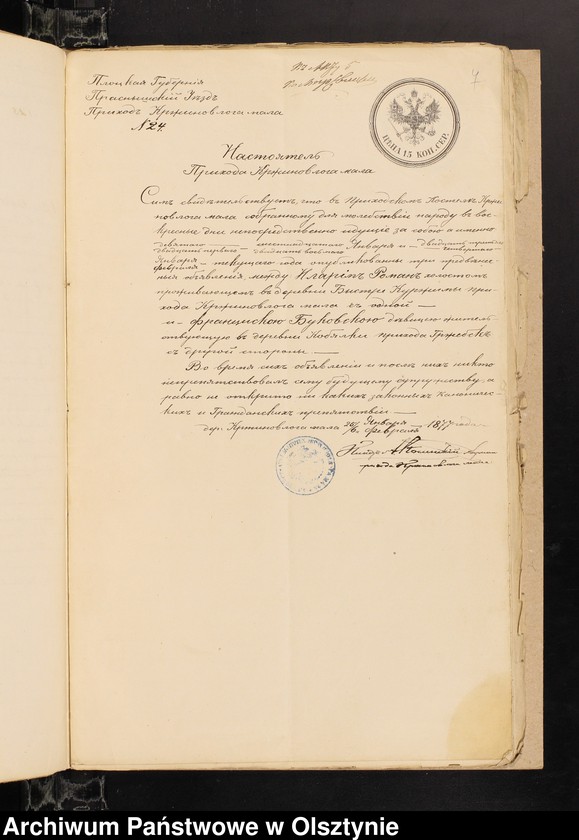 Плоцкая Губернія
Праснышскій Уѣздъ
Приходъ Кржиновлога мала
№ 24.
Къ Акту 6
7
ЦѢНА 15 КОП. СЕР.
Настоятель
Прихода Кржиновлога мала
Симъ свидѣтельствуетъ, что въ Приходскомъ Костелѣ Кржи-
новлога мала собранному для молебствія народу въ вос-
кресные дни непосредственно идущіе за собою а именно
девятаго шестнадцатаго Января и двадцать третьяго
двадцать перваго двадцать восьмаго четвертаго
Января текущаго года опубликованы три предбрач-
Февраля
ныя объявленія между Иларіемъ Романъ холостымъ
проживающимъ въ деревни Быстре Куржыны при-
хода Кржиновлога мала съ одной —
и — Францишкою Буковскою давицею житель-
ствующею въ деревни Кобялки прихода Гржебскъ
съ другой стороны. —
Во время сихъ объявленій и послѣ нихъ никто
непрепятствовалъ сему будущему супружеству, а
равно не открыто ни какихъ законныхъ каноничес-
кихъ и Гражданскихъ препятствій. —
дер. Кржиновлога мала Января 1877 года
Февраля
Archiwum Państwowe w Olsztynie